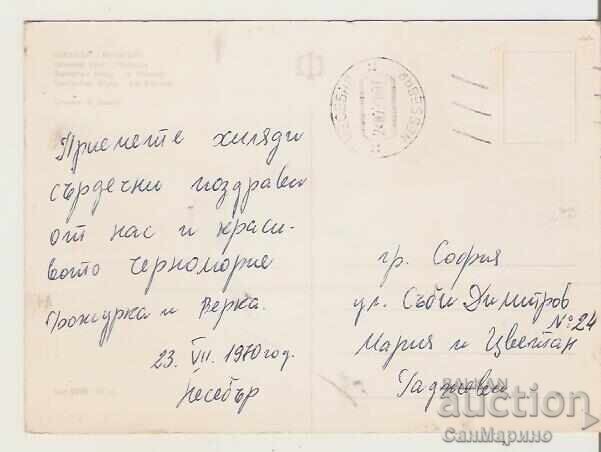 Приемете хиляди
сърдечни поздрави
от нас и краси-
вото черноморие
Божурка и Верка.
23. VII. 1980 год.
Несебър
НЕСЕБЪР
NESSEBAR
гр. София
ул. Съби Димитров
№ 24
Мария и Цветан
Хаджиеви
BALKAN
auction
СанМарино